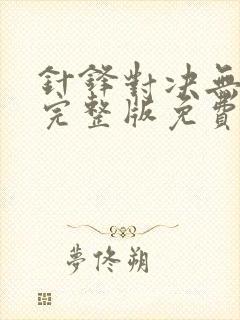 針鋒對決無
完整版免費
夢佟朔